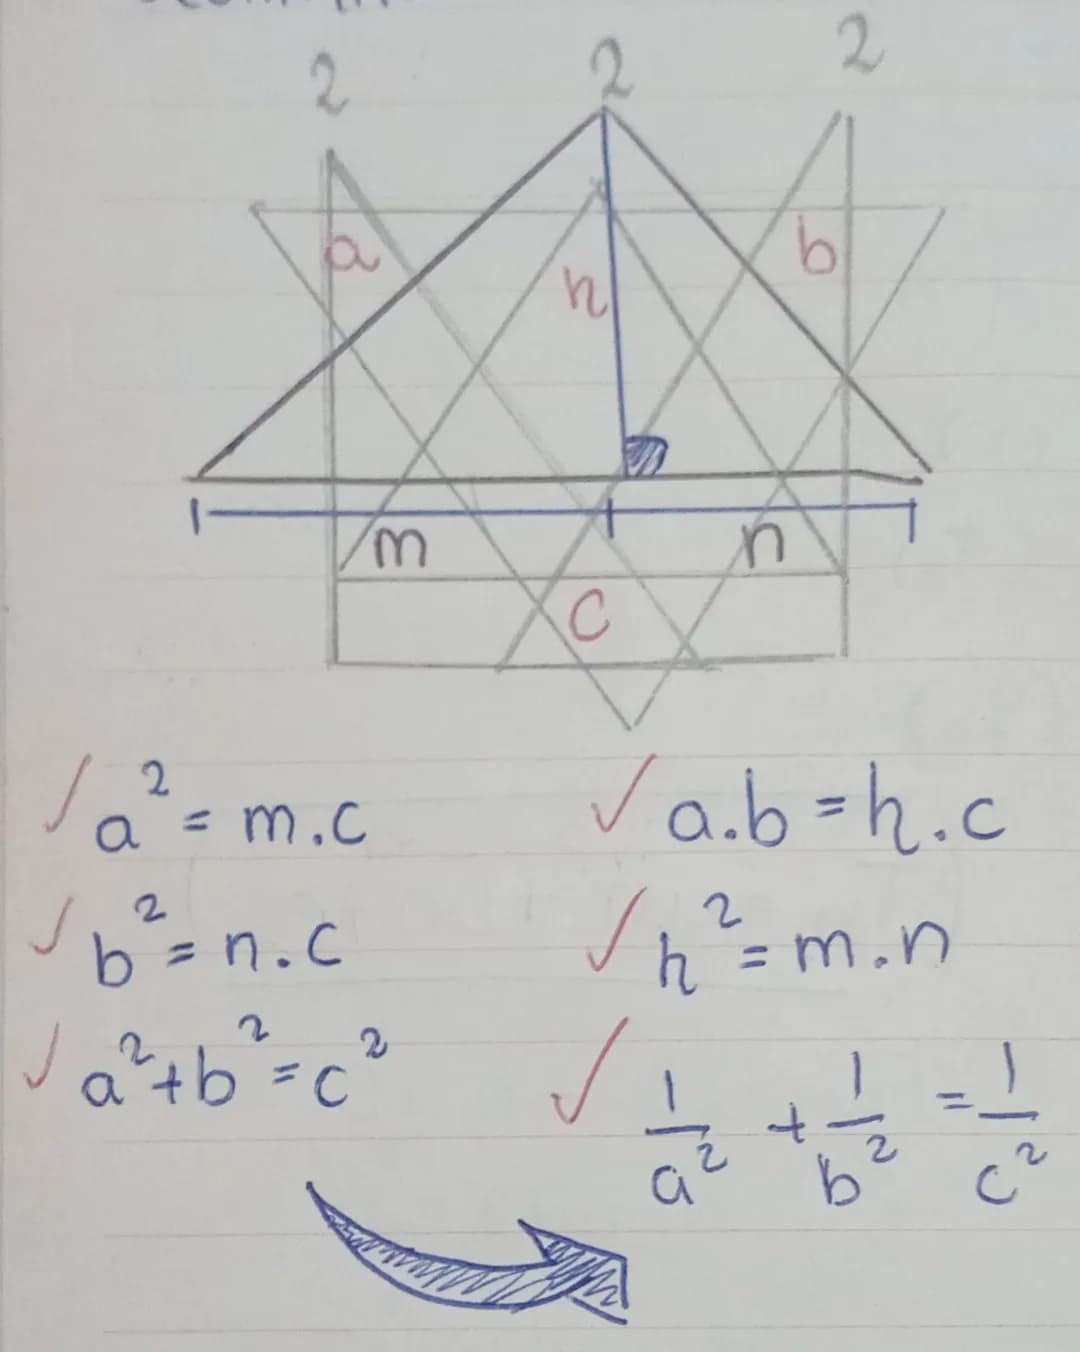 2 2 2
a h b
m n
c
✓ a² = m.c
✓ a.b = h.c
✓ b² = n.c
✓ h² = m.n
✓ a²+b² = c²
✓ 1/a² + 1/b² = 1/c²